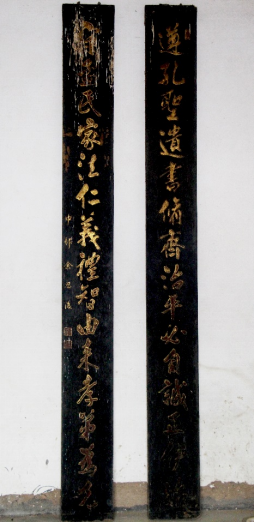 遵孔聖遺書脩齊治平必自誠正
民家法仁義禮智由來孝弟為